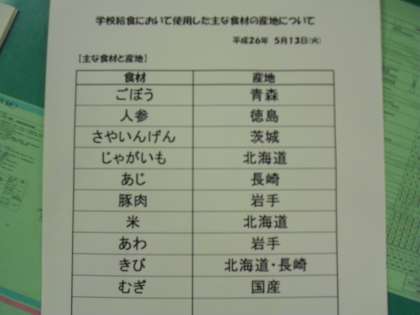 学校給食において使用した主な食材の産地について
平成26年 5月13日(火)
[主な食材と産地]
食材 産地
ごぼう 青森
人参 徳島
さやいんげん 茨城
じゃがいも 北海道
あじ 長崎
豚肉 岩手
米 北海道
あわ 岩手
きび 北海道・長崎
むぎ 国産